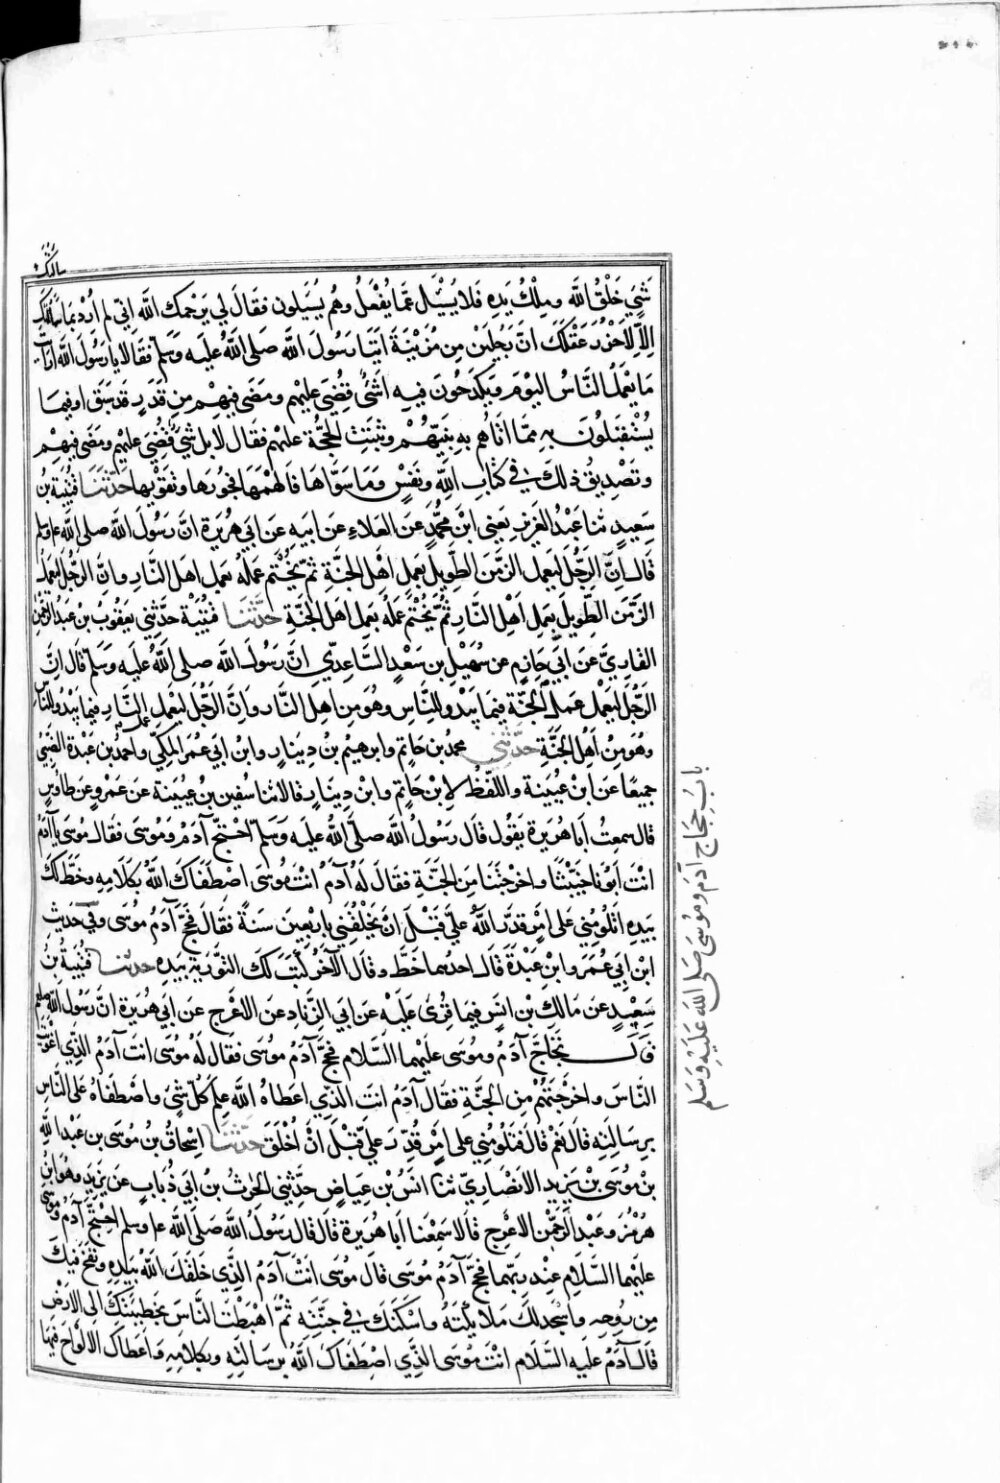 سالتك
شَيْءٍ خَلْقُ اللَّهِ وَمِلْكُ يَدِهِ فَلَا يُسْئَلُ عَمَّا يَفْعَلُ وَهُم يُسْئَلون فَقَالَ لِي يَرْحَمُكَ اللَّهُ اِنّي لم اُرِدْ بما سَأَلْتُكَ
اِلَّا لِأَحْزُرَ عَقْلَكَ انّ رَجُلَيْنِ مِن مُزَيْنَةَ اَتَيَا رَسُولَ اللَّه صلى اللَّهُ عَلَيه وَسَلّم فَقَالَا يا رَسُولَ اللَّهِ اَرَاَيْتَ
مَا يَعْمَلُ النَّاسُ اليَوْمَ وَيَكْدَحُونَ فِيهِ اَشَيْءٌ قُضِيَ عَلَيهم وَمَضَى فيهِم مِن قَدَرٍ قَد سَبَقَ او فِيمَا
يُسْتَقْبَلُونَ بِهِ مِمَّا اتَاهُم بِهِ نَبِيّهُمْ وثَبَتَتِ الحُجَّةُ عَلَيهم فَقَالَ لا بَل شَيْءٌ قُضِيَ عَلَيهم وَمَضَى فِيهم
وتَصْدِيقُ ذلكَ في كِتَابِ اللَّهِ ونَفْسٍ وَمَا سَوَّاهَا فَاَلْهَمَهَا فُجُورَهَا وتَقْوَاهَا حَدَّثَنَا قُتَيْبَة بنُ
سَعِيدٍ ثنا عَبْدُ العَزيزِ يَعني ابْنَ مُحَمَّدٍ عَنِ العَلَاءِ عَن ابيهِ عَن ابي هُرَيرَة انَّ رَسُولَ اللَّه صلى اللَّه ع وسلم
قالَ اِنَّ الرَجُلَ لَيَعمل الزَمَنَ الطَويلَ بعَمَلِ اهل الجَنَّةِ ثمّ يُخْتَم عَمَلُه بعَمَل اهل النَّارِ وانَّ الرَجُلَ لَيَعْمَلُ
الزَمَنَ الطَّويلَ بعَمَلِ اَهْلِ النَّارِ ثمّ يُخْتَم عَمَلُه بعَملِ اهلِ الجَنَّةِ حَدَّثَنَا قُتَيْبَة حَدَّثَنِي يعقُوبُ بن عَبد الرَّحمن
القَارِيَّ عَن ابي حَازِمٍ عن سَهْلِ بنِ سَعْدٍ السَّاعِدِيّ انَّ رَسُولَ اللَّه صلى اللَّهُ عَلَيه وَسَلّم قَالَ اِنَّ
الرَّجُلَ لَيَعْمَلُ عَملَ اَهْلِ الجَنَّة فِيمَا يَبْدُو للنَّاسِ وَهُوَ مِن اَهلِ النَّارِ وَاِنَّ الرَّجُلَ لَيَعْمَل عَمَل النَّارِ فِيمَا يَبْدُو للنَّاس
وَهُوَ مِنْ اَهْلِ الجَنَّةِ حَدَّثَنِي محمدُ بن حَاتِمٍ وابرهيمُ بنُ دِينَارٍ وابْن ابي عُمَر المَكّي واحمَدُ بن عَبْدة الضَّبّيّ
جميعًا عَنِ ابنِ عُيَينة واللَّفْظُ لِابْن حَاتِمٍ وابنِ دِينَارٍ قالا ثنا سُفين بن عُيَينة عَن عَمْروٍ عَن طاوُسٍ
قال سمعتُ اَبَا هُرَيرة يَقُول قال رَسُولُ اللَّه صلى اللَّهُ عَليه وَسَلّم احْتَجَّ آدَمُ ومُوسَى فَقَالَ مُوسَى يا آدَمُ
انتَ ابُونَا خَيَّبْتَنَا واخرجْتَنَا مِنَ الجَنَّةِ فقَال لَهُ آدَمُ انتَ مُوسَى اصْطَفَاكَ اللَّهُ بكَلَامِهِ وخَطَّ لَكَ
بِيَدِه اتَلُومُنِي عَلَى اَمْرٍ قَدَّرَ اللَّهُ عَلَيَّ قَبْلَ انْ يَخْلُقَنِي بارْبَعِينَ سَنَةً فَقَالَ فَحَجَّ آدَمُ مُوسَى وفي حَدِيثِ
ابنِ ابي عُمَرَ وابنِ عَبْدَةَ قَالَ احدُهُما خَطَّ وقال الآخَرُ كَتَبَ لَكَ التَّوْرَية بِيَدِهِ حدثنا قُتَيْبَةُ بنُ
سَعِيْدٍ عَن مَالِكِ بنِ انَسٍ فيمَا قُرِئَ عَلَيْهِ عَن ابي الزِّنادِ عَنِ الاعْرَج عَن ابي هُرَيرَة انَّ رَسُولَ اللَّه صلعم
قَالَ تَحَاجَّ آدَمُ ومُوسَى عَلَيهما السَّلَام فحَجَّ آدَمُ مُوسَى فَقَال لَهُ مُوسَى انتَ آدَمُ الَّذِي اَغْوَيْتَ
النَّاسَ واخرَجْتَهُمْ مِنَ الجَنَّةِ فقَالَ آدَمُ انتَ الَّذِي اعطَاهُ اللَّهُ عِلمَ كُلِّ شَيْءٍ واصْطَفَاهُ عَلَى النَّاسِ
برسَالَتِه قَالَ نعَمْ قالَ فَتَلُومُنِي عَلَى امْرٍ قُدِّرَ عَلَيَّ قَبْلَ انْ اُخْلَقَ حَدَّثَنَا اسحَاقُ بنُ مُوسَى بن عَبْدِ اللَّهِ
بْنِ مُوسَى بْنِ يَزِيد الانصَارِيّ ثنا انَسُ بْن عِيَاضٍ حدَّثَنِي الحَارث بنُ ابي ذُبَابٍ عَن يَزِيدَ وهُوَ ابْنُ
هُرْمُزَ وعَبْدِ الرَّحْمَنِ الاعرَجِ قَالَا سَمِعْنَا ابا هُرَيرَةَ قَالَ قَالَ رَسُولُ اللَّه صَلى اللَّه ع وسلم احْتَجَّ آدَمُ ومُوسَى
عَلَيهما السَّلَام عِنْدَ رَبّهما فَحَجَّ آدَمُ مُوسَى قَالَ مُوسَى انْتَ آدَمُ الَّذِي خَلَقَكَ اللَّهُ بِيَدِهِ وَنَفَخَ فِيكَ
مِن رُوحِه واَسْجَدَ لَكَ مَلَائِكَتَهُ واسْكَنَكَ فِي جَنَّتِهِ ثُمَّ اهْبَطْتَ النَّاسَ بِخَطِيئَتِكَ اِلَى الارْضِ
قَالَ آدَمُ عَلَيه السَّلَام انتَ مُوسَى الَّذِي اصْطَفَاكَ اللَّهُ بِرسَالَتِه وبكَلَامِهِ وَاعطَاكَ الالْوَاحَ فِيهَا
بابُ حِجَاجِ آدَمَ ومُوسَى صَلى اللَّه عَلَيْهِ وَسَلم